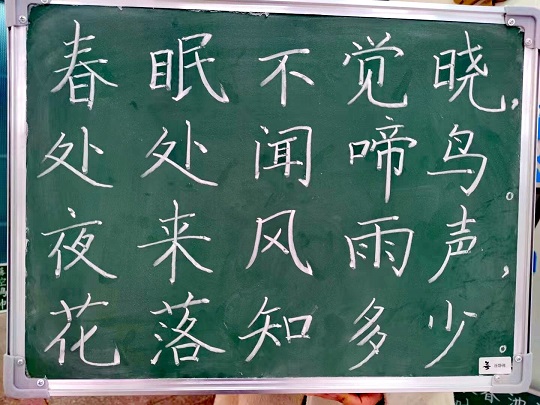 春眠不觉晓,
处处闻啼鸟。
夜来风雨声,
花落知多少。